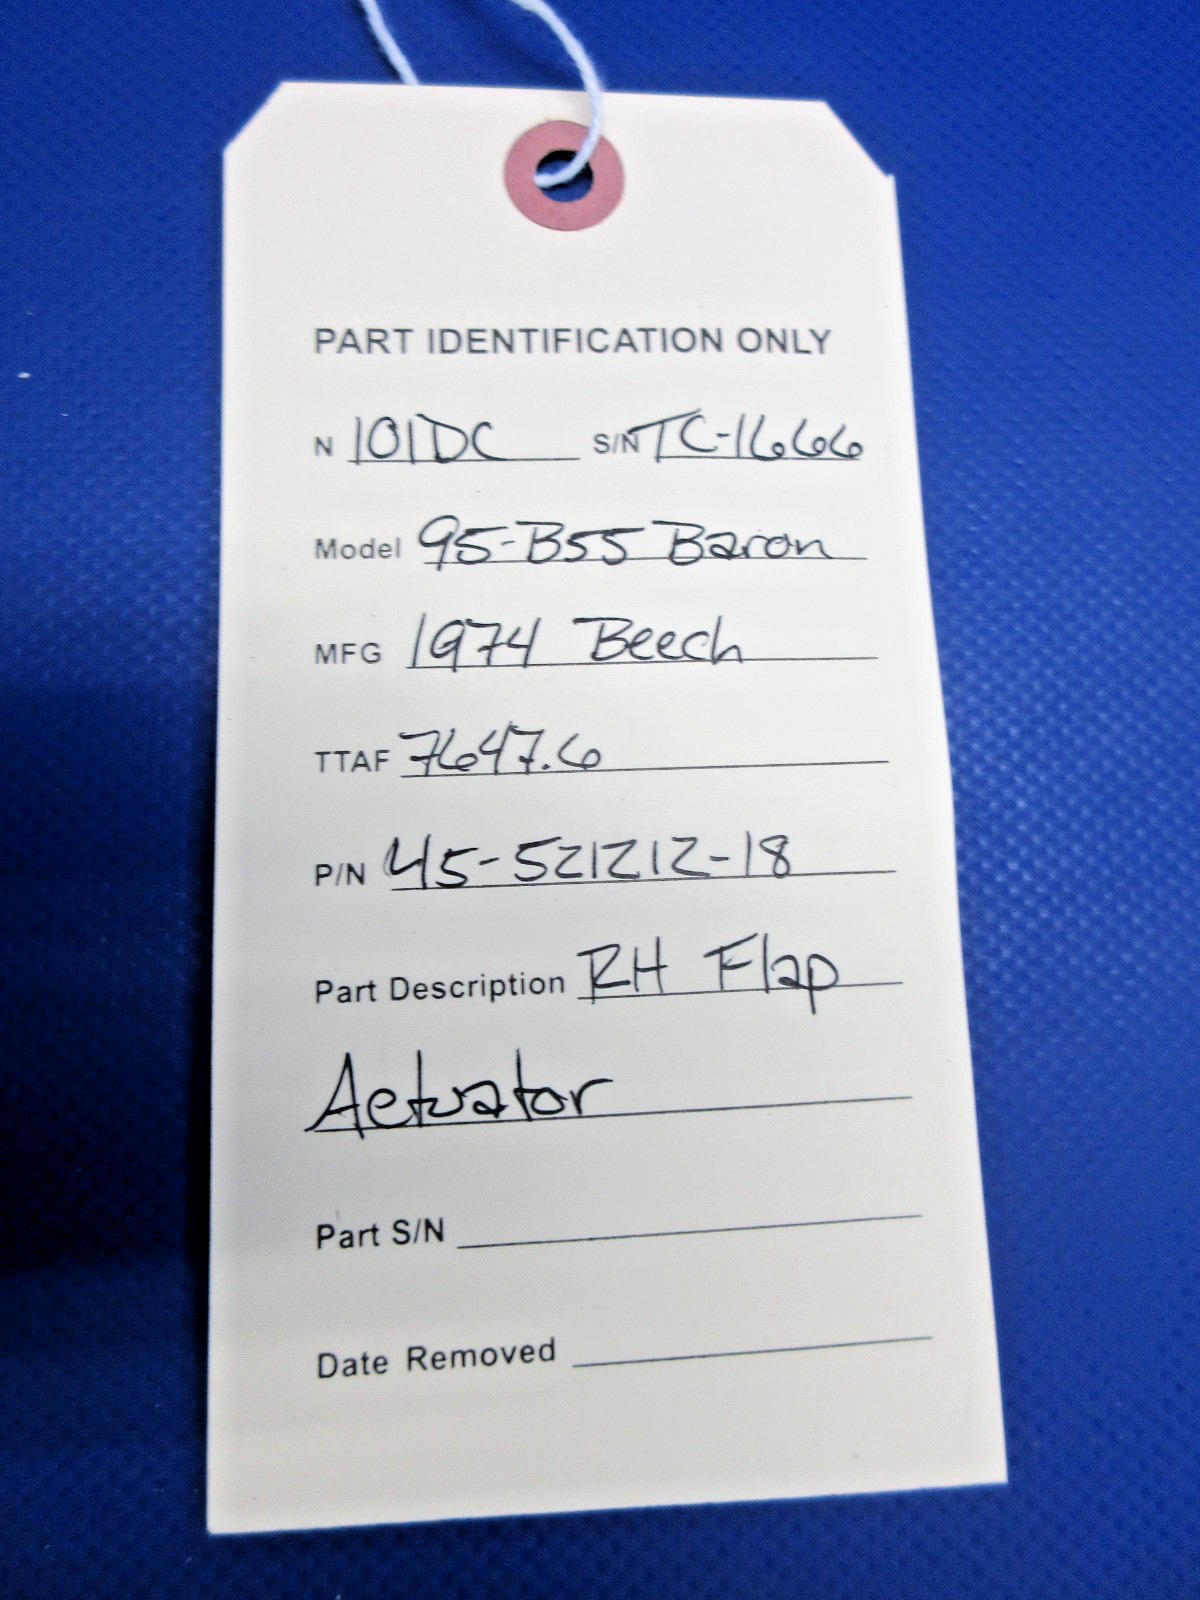 PART IDENTIFICATION ONLY
N 101DC S/N TC-1666
Model 95-B55 Baron
MFG 1974 Beech
TTAF 7647.6
P/N 45-521212-18
Part Description RH Flap
Actuator
Part S/N
Date Removed